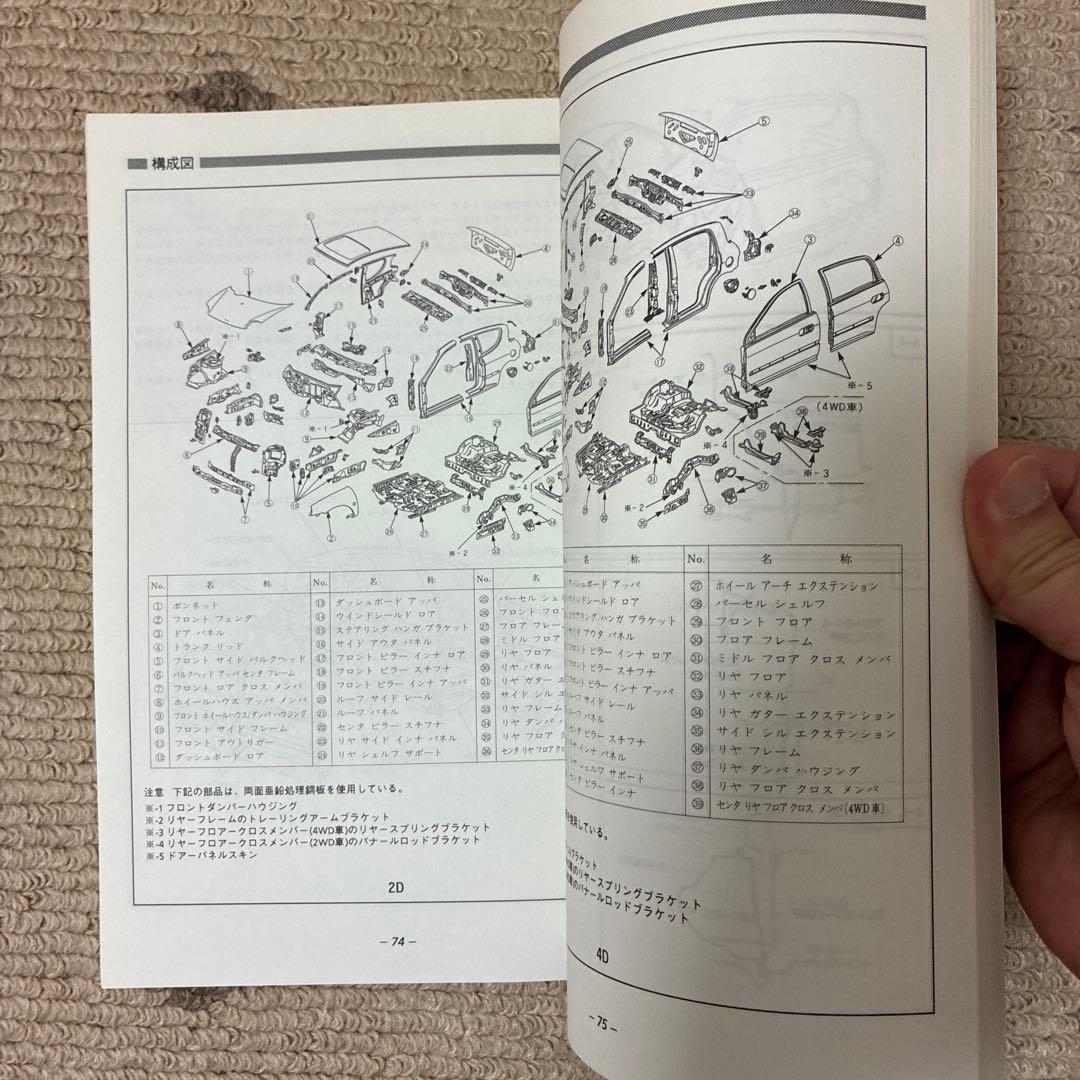 構成図
※-1
※-1
※-4
※-2
No. 名 称 No. 名 称 No. 名
① ボンネット
② フロント フェンダ
③ ドア パネル
④ トランク リッド
⑤ フロント サイド バルクヘッド
⑥ バルクヘッド アッパ センタ フレーム
⑦ フロント ロア クロス メンバ
⑧ ホイールハウス アッパ メンバ
⑨ フロント ホイールハウス/ダンパ ハウジング
⑩ フロント サイド フレーム
⑪ フロント アウトリガー
⑫ ダッシュボード ロア
⑬ ダッシュボード アッパ
⑭ ウインドシールド ロア
⑮ ステアリング ハンガ ブラケット
⑯ サイド アウタ パネル
⑰ フロント ピラー インナ ロア
⑱ フロント ピラー スチフナ
⑲ フロント ピラー インナ アッパ
⑳ ルーフ サイド レール
㉑ ルーフ パネル
㉒ センタ ピラー スチフナ
㉓ リヤ サイド インナ パネル
㉔ リヤ シェルフ サポート
㉕ パーセル シェル
㉖ フロント フロ
㉗ フロア フレー
㉘ ミドル フロア
㉙ リヤ フロア
㉚ リヤ パネル
㉛ リヤ ガター エ
㉜ サイド シル エ
㉝ リヤ フレーム
㉞ リヤ ダンパ ハ
㉟ リヤ フロア ク
㊱ センタ リヤ フロア クロ
注意 下記の部品は、両面亜鉛処理鋼板を使用している。
※-1 フロントダンパーハウジング
※-2 リヤーフレームのトレーリングアームブラケット
※-3 リヤーフロアークロスメンバー(4WD車)のリヤースプリングブラケット
※-4 リヤーフロアークロスメンバー(2WD車)のパナールロッドブラケット
※-5 ドアーパネルスキン
2D
- 74 -
※-5
(4WD車)
※-4
※-3
※-2
名 称 No. 名 称
ダッシュボード アッパ
ウインドシールド ロア
ステアリング ハンガ ブラケット
サイド アウタ パネル
フロント ピラー インナ ロア
フロント ピラー スチフナ
フロント ピラー インナ アッパ
ルーフ サイド レール
ルーフ パネル
センタ ピラー スチフナ
インナ パネル
シェルフ サポート
センタ ピラー インナ
㉗ ホイール アーチ エクステンション
㉘ パーセル シェルフ
㉙ フロント フロア
㉚ フロア フレーム
㉛ ミドル フロア クロス メンバ
㉜ リヤ フロア
㉝ リヤ パネル
㉞ リヤ ガター エクステンション
㉟ サイド シル エクステンション
㊱ リヤ フレーム
㊲ リヤ ダンパ ハウジング
㊳ リヤ フロア クロス メンバ
㊴ センタ リヤ フロア クロス メンバ (4WD車)
使用している。
ムブラケット
のリヤースプリングブラケット
のパナールロッドブラケット
4D
- 75 -